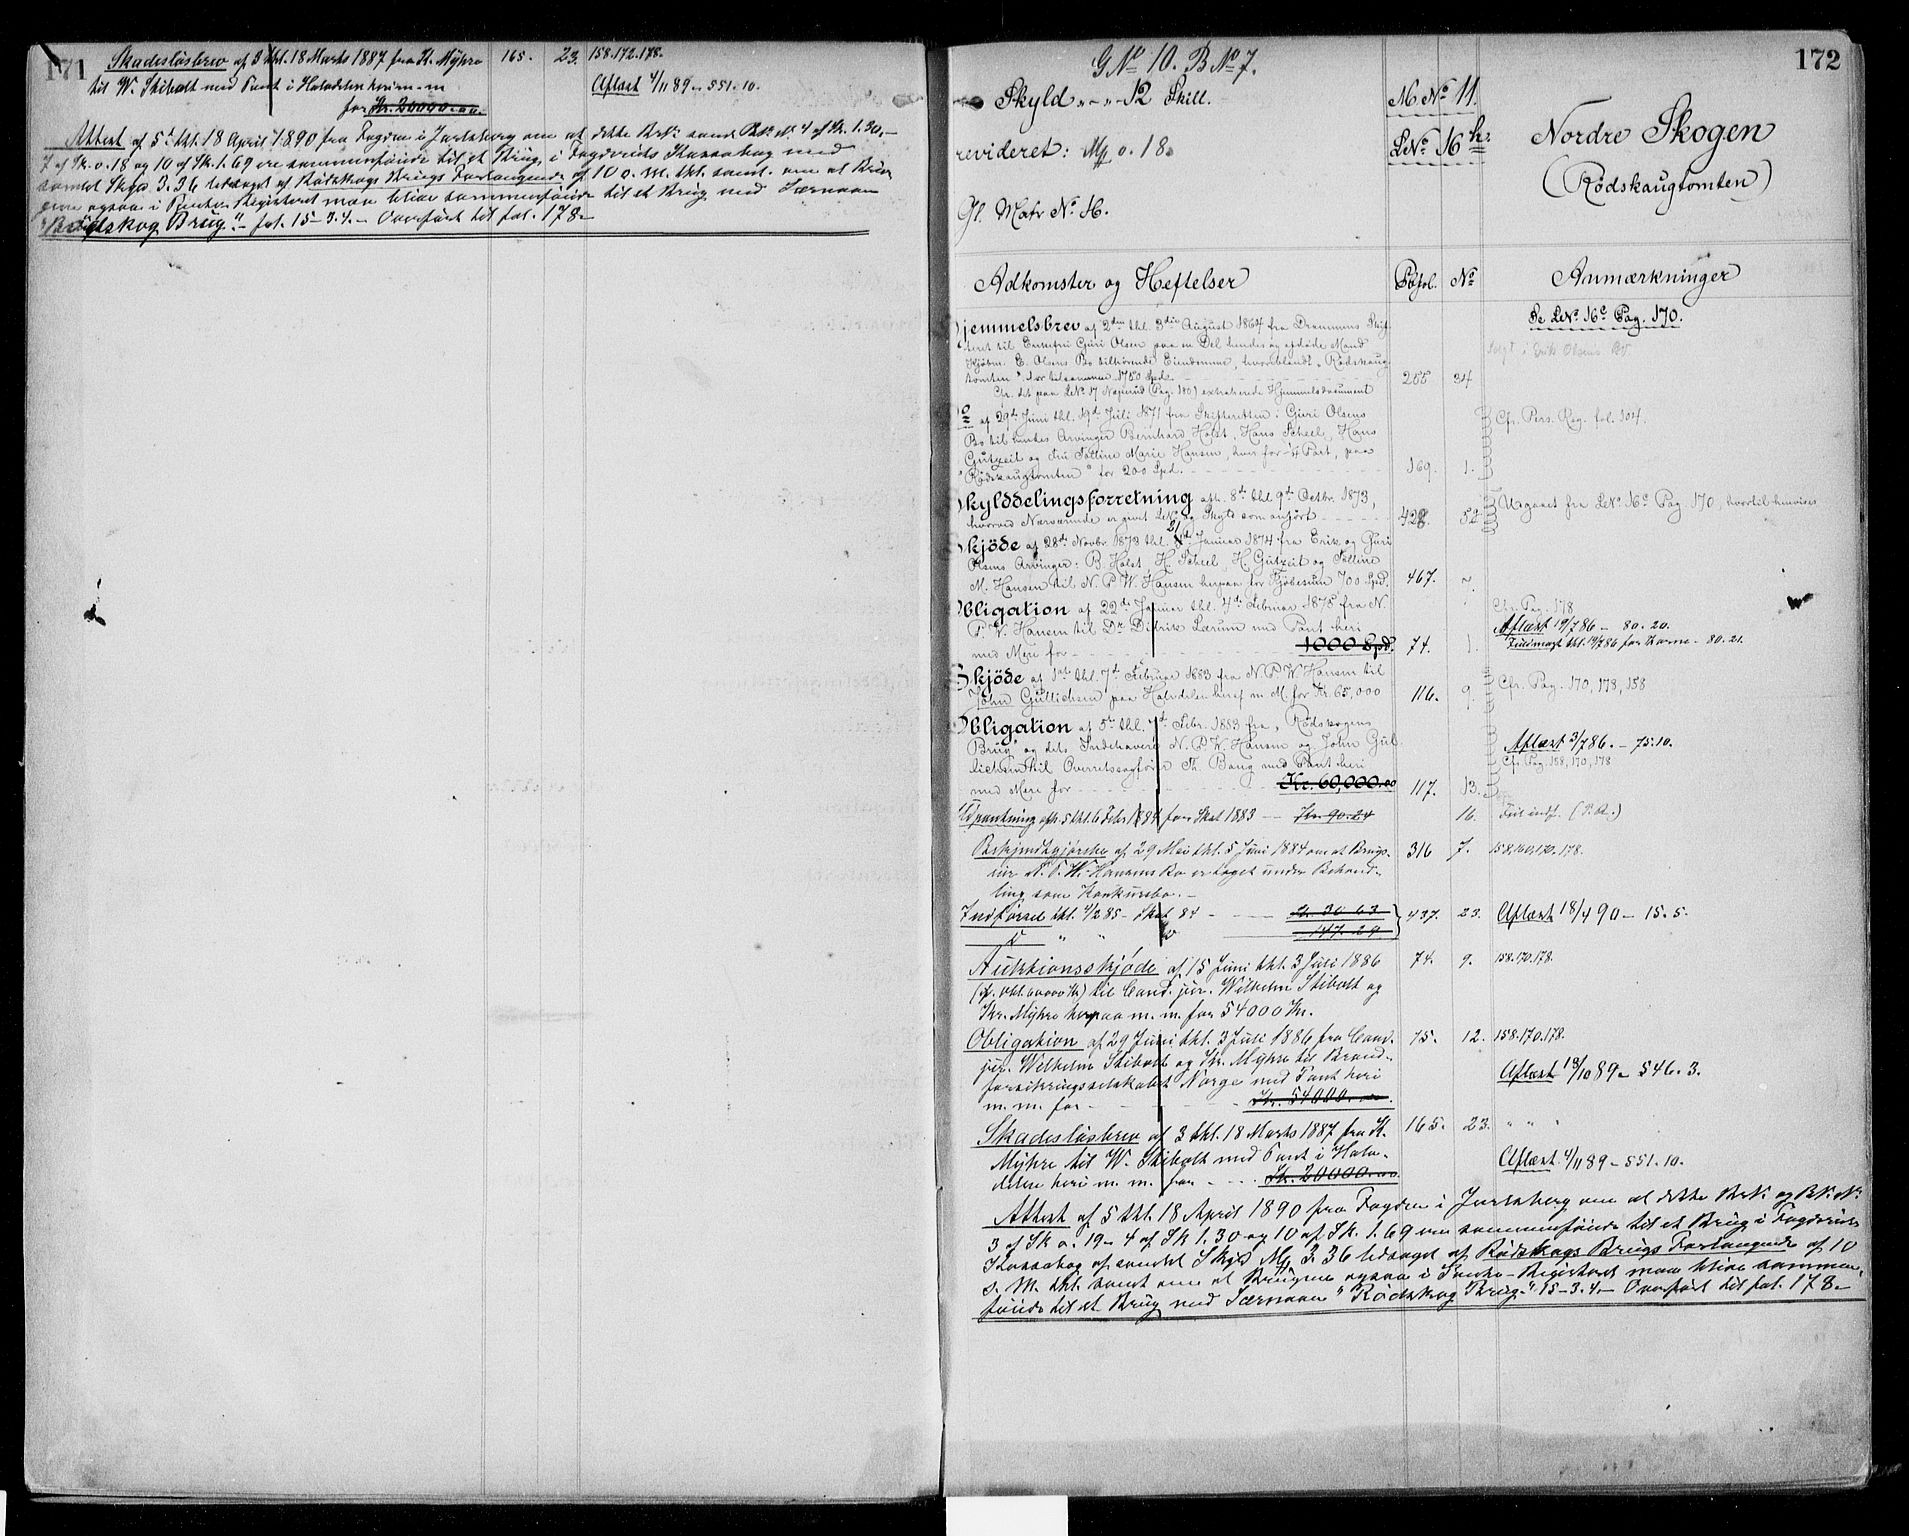 171
Skadesløsbrev af 3 thl. 18 Marts 1887 fra K. Myhre 165. 23. 158.172.178.
til W. Stibolt med Pant i Halvdelen heri m. m Aflæst 4/11 89 - 551.10.
for Kr. 20000.00
Attest af 5 thl. 18 April 1890 fra Fogden i Jarlsberg om at dette BrN. samt BrN. N. 4 af Sk. 1.30.-
7 af Sk. 0.18 og 10 af Sk. 1.69 ere sammenføiede til et Brug i Fogderiets Kassabog med
samlet Skyld 3.36 ledsaget af Rødskogs Brugs Forlangende af 10 s. M. thl. samt. om at Brugene
ogsaa i Pante-Registeret maa blive sammenføiede til et Brug med Særnavn
"Rødskog Brug". - fol. 15-3.4. - Overført til fol. 178 -
172
G No 10. B No 7.
Skyld " - " - 12 Skill.
revideret: Mk 0.18.
Gl. Matr No H.
M. No 11.
L No 16 h.
Nordre Skogen
(Rødskaugtomten)
Adkomster og Heftelser Pgfol. No Anmærkninger
Se LNo 16c Pag. 170.
Hjemmelsbrev af 2den thl. 3die August 1864 fra Drammens Skif-
teret til Enkefru Guri Olsen paa en Del hendes og afdøde Mand
Kjøbm. E. Olsens Bo tilhørende Eiendomme, hvoriblandt "Rødskaug-
tomten", for tilsammen 1750 Spd. 255 34
Cfr. det paa LNo 17 Pag. 180 extraherede Hjemmelsdocument
Do af 29de Juni thl. 19de Juli 1871 fra Skifteretten i Guri Olsens Cfr. Pers. Reg. fol. 104.
Bo til hendes Arvinger Bernhard Holst, Hans Scheel, Hans
Gutzeit og Fru Talline Marie Hansen, hver for ¼ Part, paa
"Rødskaugtomten" for 200 Spd. 169. 1.
Skylddelingsforretning afh. 8de thl. 9de Octbr. 1873, Udgaaet fra LNo 16c Pag. 170, hvortil henvises
hvorved Nærværende er givet LNo og Skyld som anført 428. 52
Skjøde af 28de Novbr. 1873 thl. 21 Januar 1874 fra Erik og Guri
Olsens Arvinger: B. Holst, H. Scheel, H. Gutzeit og Talline
M. Hansen til N. P. W. Hansen herpaa for Kjøbesum 700 Spd. 467.
Obligation af 22de Januar thl. 4de Februar 1875 fra N. Cfr. Pag. 178
P. W. Hansen til Dr. Didrik Lærum med Pant heri Aflæst 19/7 86 - 80.20.
med Mere for 1000 Spd. 74. 1.
Skjøde af 1ste thl. 7de Februar 1883 fra N. P. W. Hansen til Cfr. Pag. 170, 178, 158
John Gullichsen paa Halvdelen heraf m. M. for Kr. 65,000 116. 9.
Obligation af 5te thl. 7de Febr. 1883 fra "Rødskogens
Brug" og dets Indehavere N. P. W. Hansen og John Gul- Aflæst 3/7 86. - 75.10.
lichsen til Overretssagfører Th. Bang med Pant heri Cfr. Pag. 158, 170, 178
med Mere for Kr. 60,000.00 117. 13.
Udpantning afh. 5 thl. 6 Febr 1884 for Skat 1883 - Kr. 90.24 16.
Bekjendtgjørelse af 29 Mai thl. 5 Juni 1884 om at Brugs- 316 7. 158.160.170.178.
eier N. P. W. Hansens Bo er taget under Behand-
ling som Konkursbo. -
Indførsel thl. 4/2 85 - Skat 84 - Kr. 30 63 437. 23. Aflæst 18/4 90 - 15.5.
Do " " Do 147.29
Auktionsskjøde af 15 Juni thl. 3 Juli 1886 74. 9. 158.170.178.
til Cand. jur. Wilhelm Stibolt og
Kr. Myhre herpaa m. m. for 54000 Kr.
Obligation af 29 Juni thl. 3 Juli 1886 fra Cand. 75. 12. 158.170.178.
jur. Wilhelm Stibolt og Kr. Myhre til Brand- Aflæst 18/10 89 - 546.3.
forsikringsselskabet Norge med Pant heri
m. m. for Kr. 54000.
Skadesløsbrev af 3 thl. 18 Marts 1887 fra K. 165. 23. " " "
Myhre til W. Stibolt med Pant i Halv- Aflæst 4/11 89 - 551.10.
delen heri m. m. for Kr. 20000.00
Attest af 5 thl. 18 April 1890 fra Fogden i Jarlsberg om at dette BrN. og BrN. N.
3 af Sk 0.19 - 4 af Sk 1.30 og 10 af Sk. 1.69 ere sammenføiede til et Brug i Fogderiets
Kassabog af samlet Skyld Mk 3.36 ledsaget af Rødskogs Brugs Forlangende af 10
s. M. thl. samt om at Brugene ogsaa i Pante-Registeret maa blive sammen-
føiede til et Brug med Særnavn "Rødskog Brug". 15-3.4. - Overført til fol. 178 -